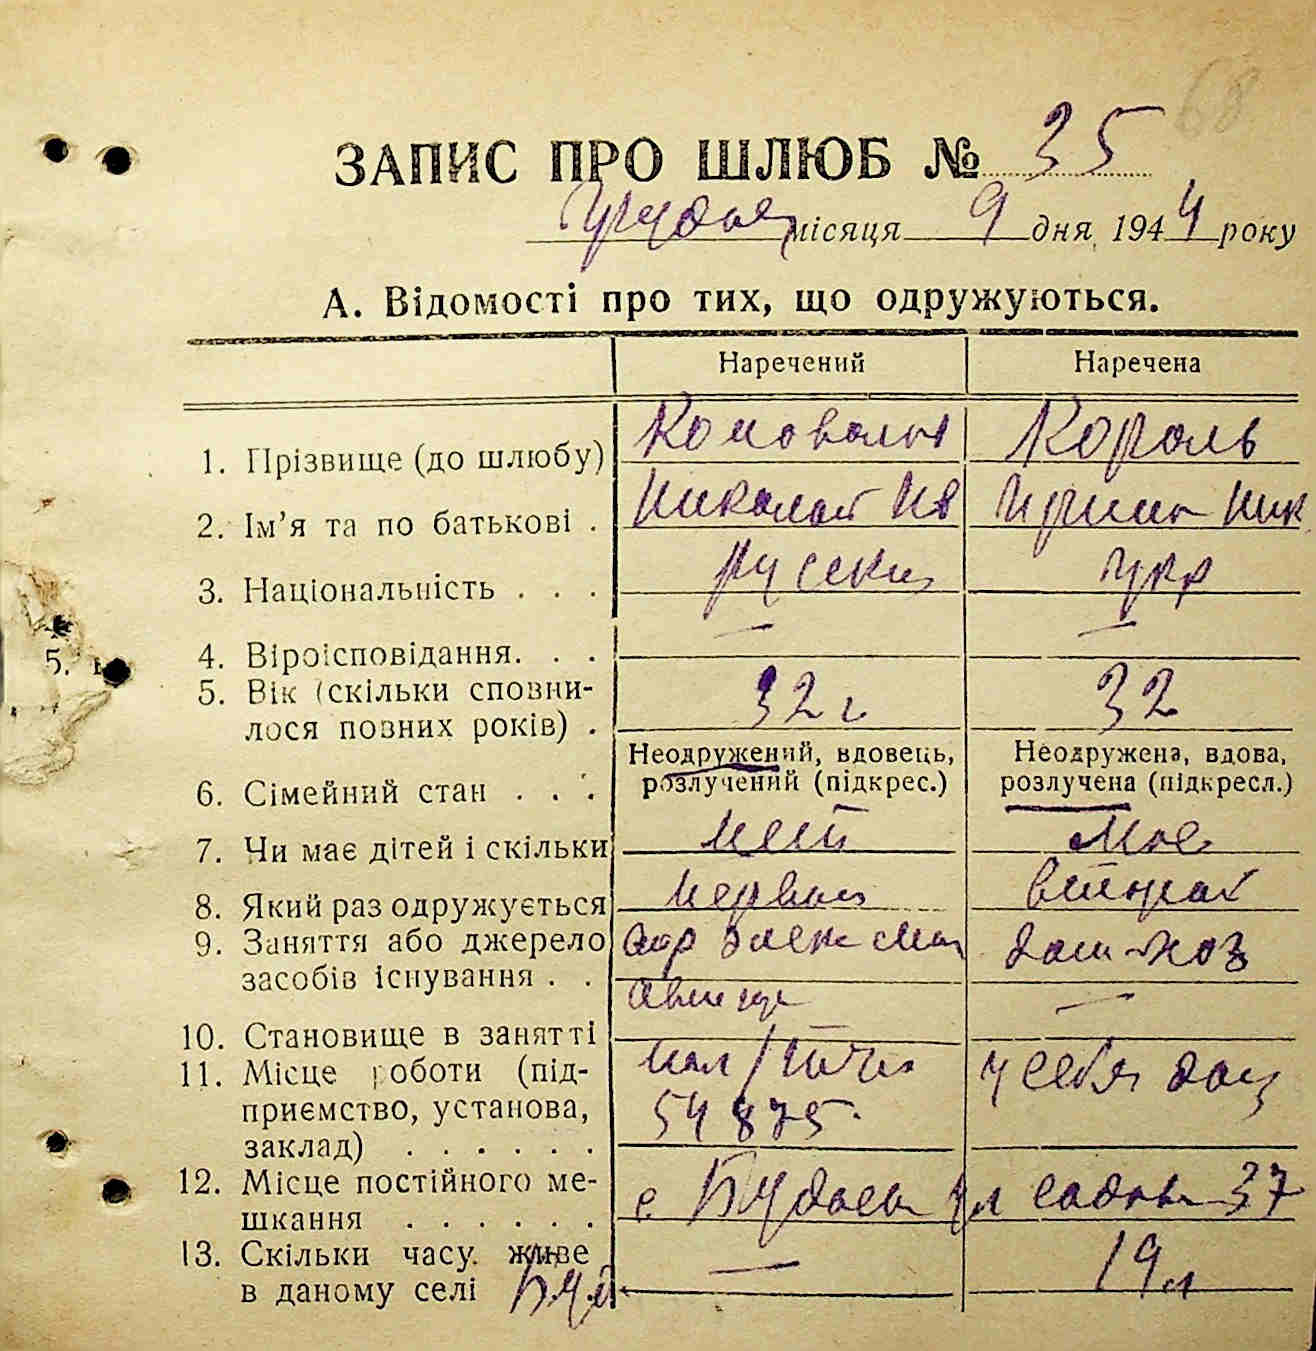 68
ЗАПИС ПРО ШЛЮБ № 35
Грудня місяця 9 дня 1944 року
А. Відомості про тих, що одружуються.
Наречений Наречена
1. Прізвище (до шлюбу) Король
2. Ім'я та по батькові . Николай Ив Ирина Ник
3. Національність . . . русский укр
4. Віроісповідання. . . — —
5. Вік (скільки сповни-
лося повних років) . 32 г 32
Неодружений, вдовець, Неодружена, вдова,
6. Сімейний стан . . . розлучений (підкрес.) розлучена (підкресл.)
7. Чи має дітей і скільки нет
8. Який раз одружується первый второй
9. Заняття або джерело дом-хоз
засобів існування . . —
10. Становище в занятті
11. Місце роботи (під- у себя дом
приємство, установа, 54875
заклад) . . . . . .
12. Місце постійного ме-
шкання . . . . . . с ул садов 37
13. Скільки часу живе — 19 л
в даному селі
5.